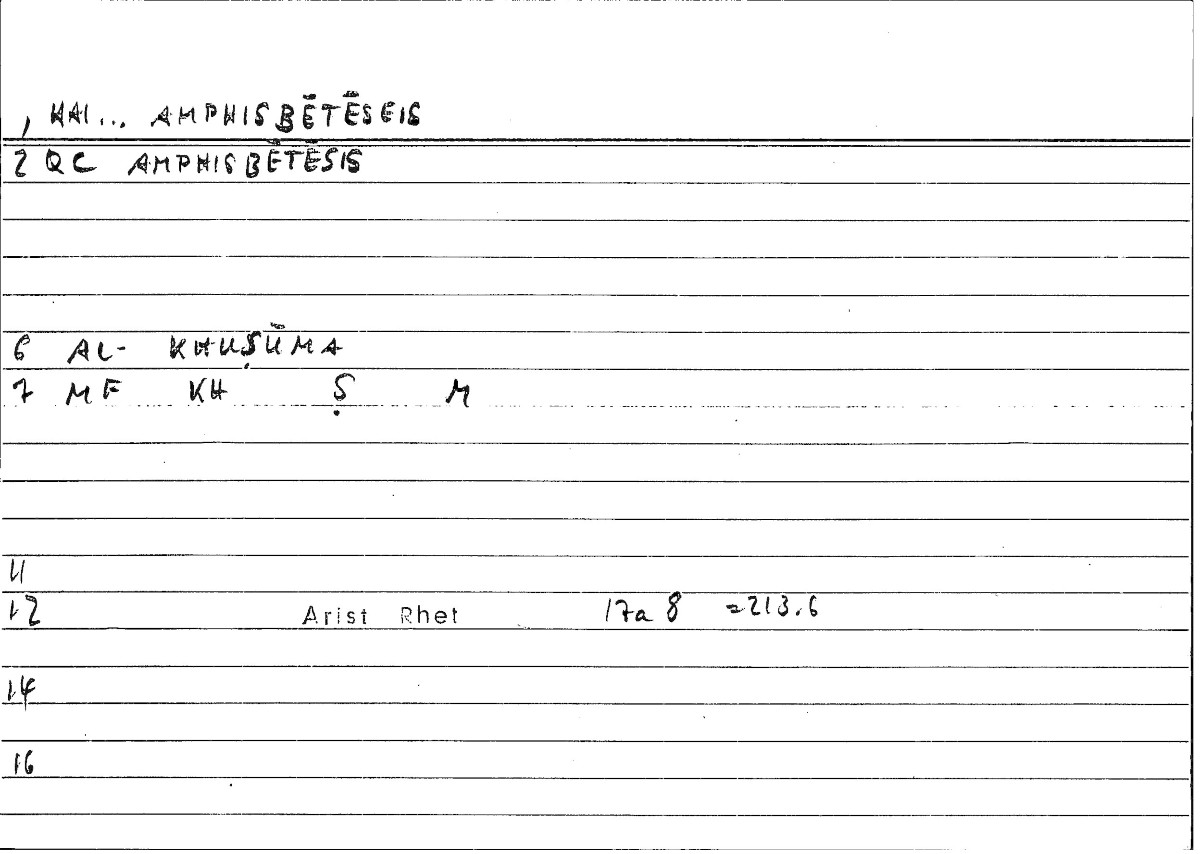 , KAI... AMPHISBĒTĒSEIS
2 QC AMPHISBĒTĒSIS
6 AL- KHUṢŪMA
7 MF KH Ṣ M
11
12 Arist Rhet 17a 8 =213.6
14
16